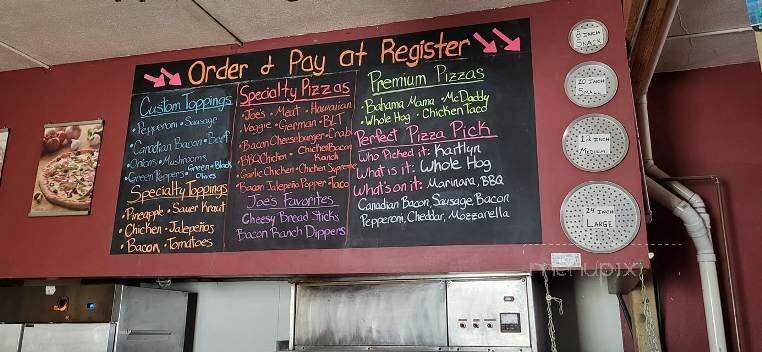 Order & Pay at Register
Custom Toppings
• Pepperoni • Sausage
• Canadian Bacon • Beef
• Onions • Mushrooms
• Green Peppers • Green • Black
Olives
Specialty Toppings
• Pineapple • Sauer Kraut
• Chicken • Jalepeños
• Bacon • Tomatoes
Specialty Pizzas
• Joe's • Meat • Hawaiian
• Veggie • German • BLT
• Bacon Cheeseburger • Crab
• BBQ Chicken • Chicken Bacon
Ranch
• Garlic Chicken • Chicken Supreme
• Bacon Jalepeño Popper • Taco
Joe's Favorites
Cheesy Bread Sticks
Bacon Ranch Dippers
Premium Pizzas
• Bahama Mama • McDaddy
• Whole Hog • Chicken Taco
Perfect Pizza Pick
Who Picked it: Kaitlyn
What is it: Whole Hog
What's on it: Marinara, BBQ
Canadian Bacon, Sausage, Bacon
Pepperoni, Cheddar, Mozzarella
8 INCH
SNACK
10 INCH
SMALL
12 INCH
MEDIUM
LARGE
menupix